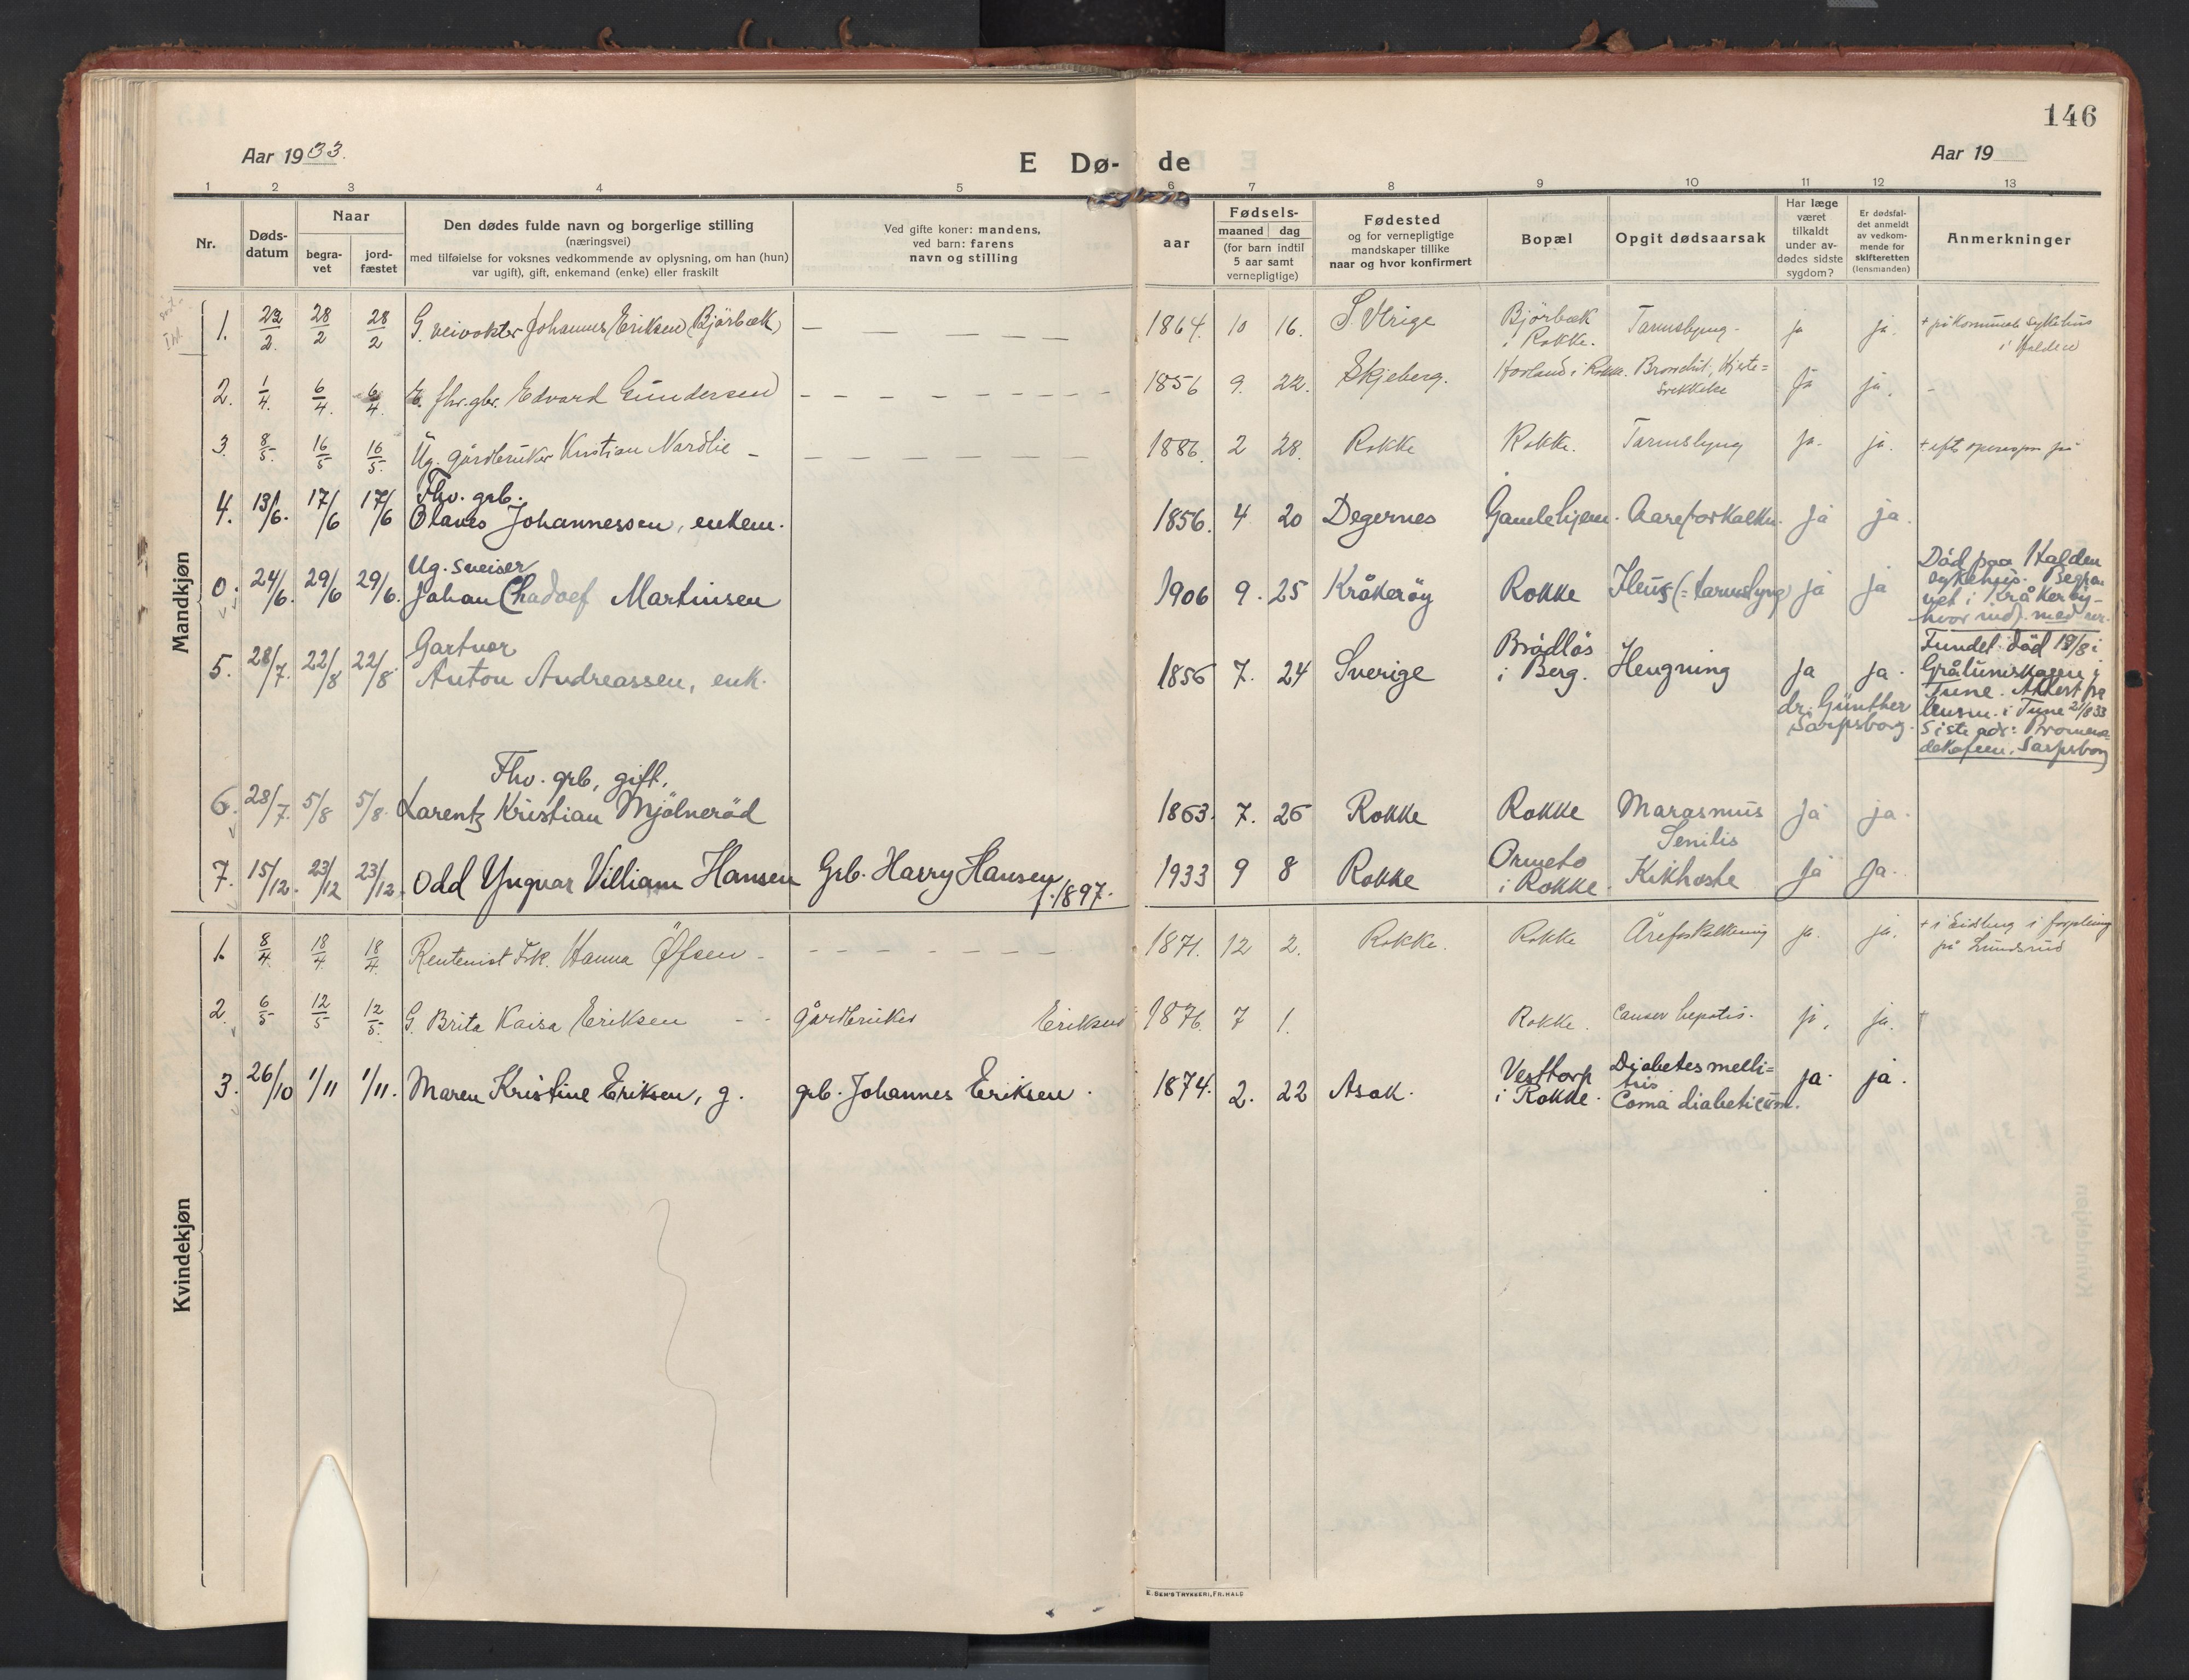 146
Aar 1933.
E Dø-
de
Aar 19
1 2 3 4 5 6 7 8 9 10 11 12 13
Nr.
Døds-
datum
Naar
begra-
vet
jord-
fæstet
Den dødes fulde navn og borgerlige stilling
(næringsvei)
med tilføielse for voksnes vedkommende av oplysning, om han (hun)
var ugift), gift, enkemand (enke) eller fraskilt
Ved gifte koner: mandens,
ved barn: farens
navn og stilling
aar
Fødsels-
maaned dag
(for barn indtil
5 aar samt
vernepligtige)
Fødested
og for vernepligtige
mandskaper tillike
naar og hvor konfirmert
Bopæl
Opgit dødsaarsak
Har læge
været
tilkaldt
under av-
dødes sidste
sygdom?
Er dødsfal-
det anmeldt
av vedkom-
mende for
skifteretten
(lensmanden)
Anmerkninger
Mandkjøn
1. 23/2. 28/2 28/2 G. veivokter Johannes Eriksen (Bjørbæk) 1864. 10 16. Sverige Bjørbæk
i Rokke. Tarmslyng- ja ja. + på kommunale Sykehus
i Halden
2. 1/4. 6/4. 6/4. fhv. gbr. Edvard Gundersen 1856 9. 22. Skjeberg. i Rokke. Bronchit, Hjerte=
svekkelse ja ja. -
3. 8/5. 16/5 16/5. Ug. gårdbruker Kristian Nordlie - 1886. 2 28. Rokke Rokke. Tarmslyng ja. ja.
4. 13/6. 17/6 17/6 Fhv. grb.
Olaves Johannessen, enkem. 1856. 4 20 Degernes Gamlehjem. Aareforkalkn. ja ja.
0. 24/6. 29/6 29/6. Ug. sveiser
Johan Martinsen 1906 9. 25 Kråkerøy Rokke Ileus (= tarmslyng) ja ja Død paa Halden
sykehus. Begra-
vet i Kråkerøy-
hvor indf. med nr.
5. 28/7. 22/8 22/8 Gartner
Anton Andreassen, enk. 1856 7. 24 Sverige Brødløs
i Berg. Hengning ja ja.
dr. Günther
Sarpsborg.
Fundet død 18/8 i
Grålumskogen i
Tune. Attest fra
lensm. i Tune 21/8 33
Siste adr: Promena-
dekafeen, Sarpsborg
6. 28/7. 5/8 5/8. Fhv. grb, gift.
Larentz Kristian Mjølnerød 1863. 7. 26 Rokke Rokke Marasmus
Senilis ja ja.
7. 15/12. 23/12 23/12. Odd Yngvar Villiam Hansen Grb. Harry Hansen
f. 1897. 1933 9 8 Rokke Ormeto
i Rokke. Kikhoste ja ja.
Kvindekjøn
1. 8/4. 18/4. 18/4. Rentenist Frk. Hanna - 1871. 12 2. Rokke. Rokke Åreforkalkning ja. ja. + i Eidsberg i forpleining
på Lundsrud
2. 6/5 12/5 12/5. G. Brita Kaisa Eriksen - - gårdbruker Eriksen 1876. 7 1. Rokke. Cancer hepatis. ja, ja.
3. 26/10 1/11 1/11. Maren Kristine Eriksen, g. grb. Johannes Eriksen. 1874. 2. 22 Asak. Vesttorp
i Rokke. Diabetes melli=
tus
Coma diabeticum. ja. ja.
E. SEM'S TRYKKERI, FR.HALD